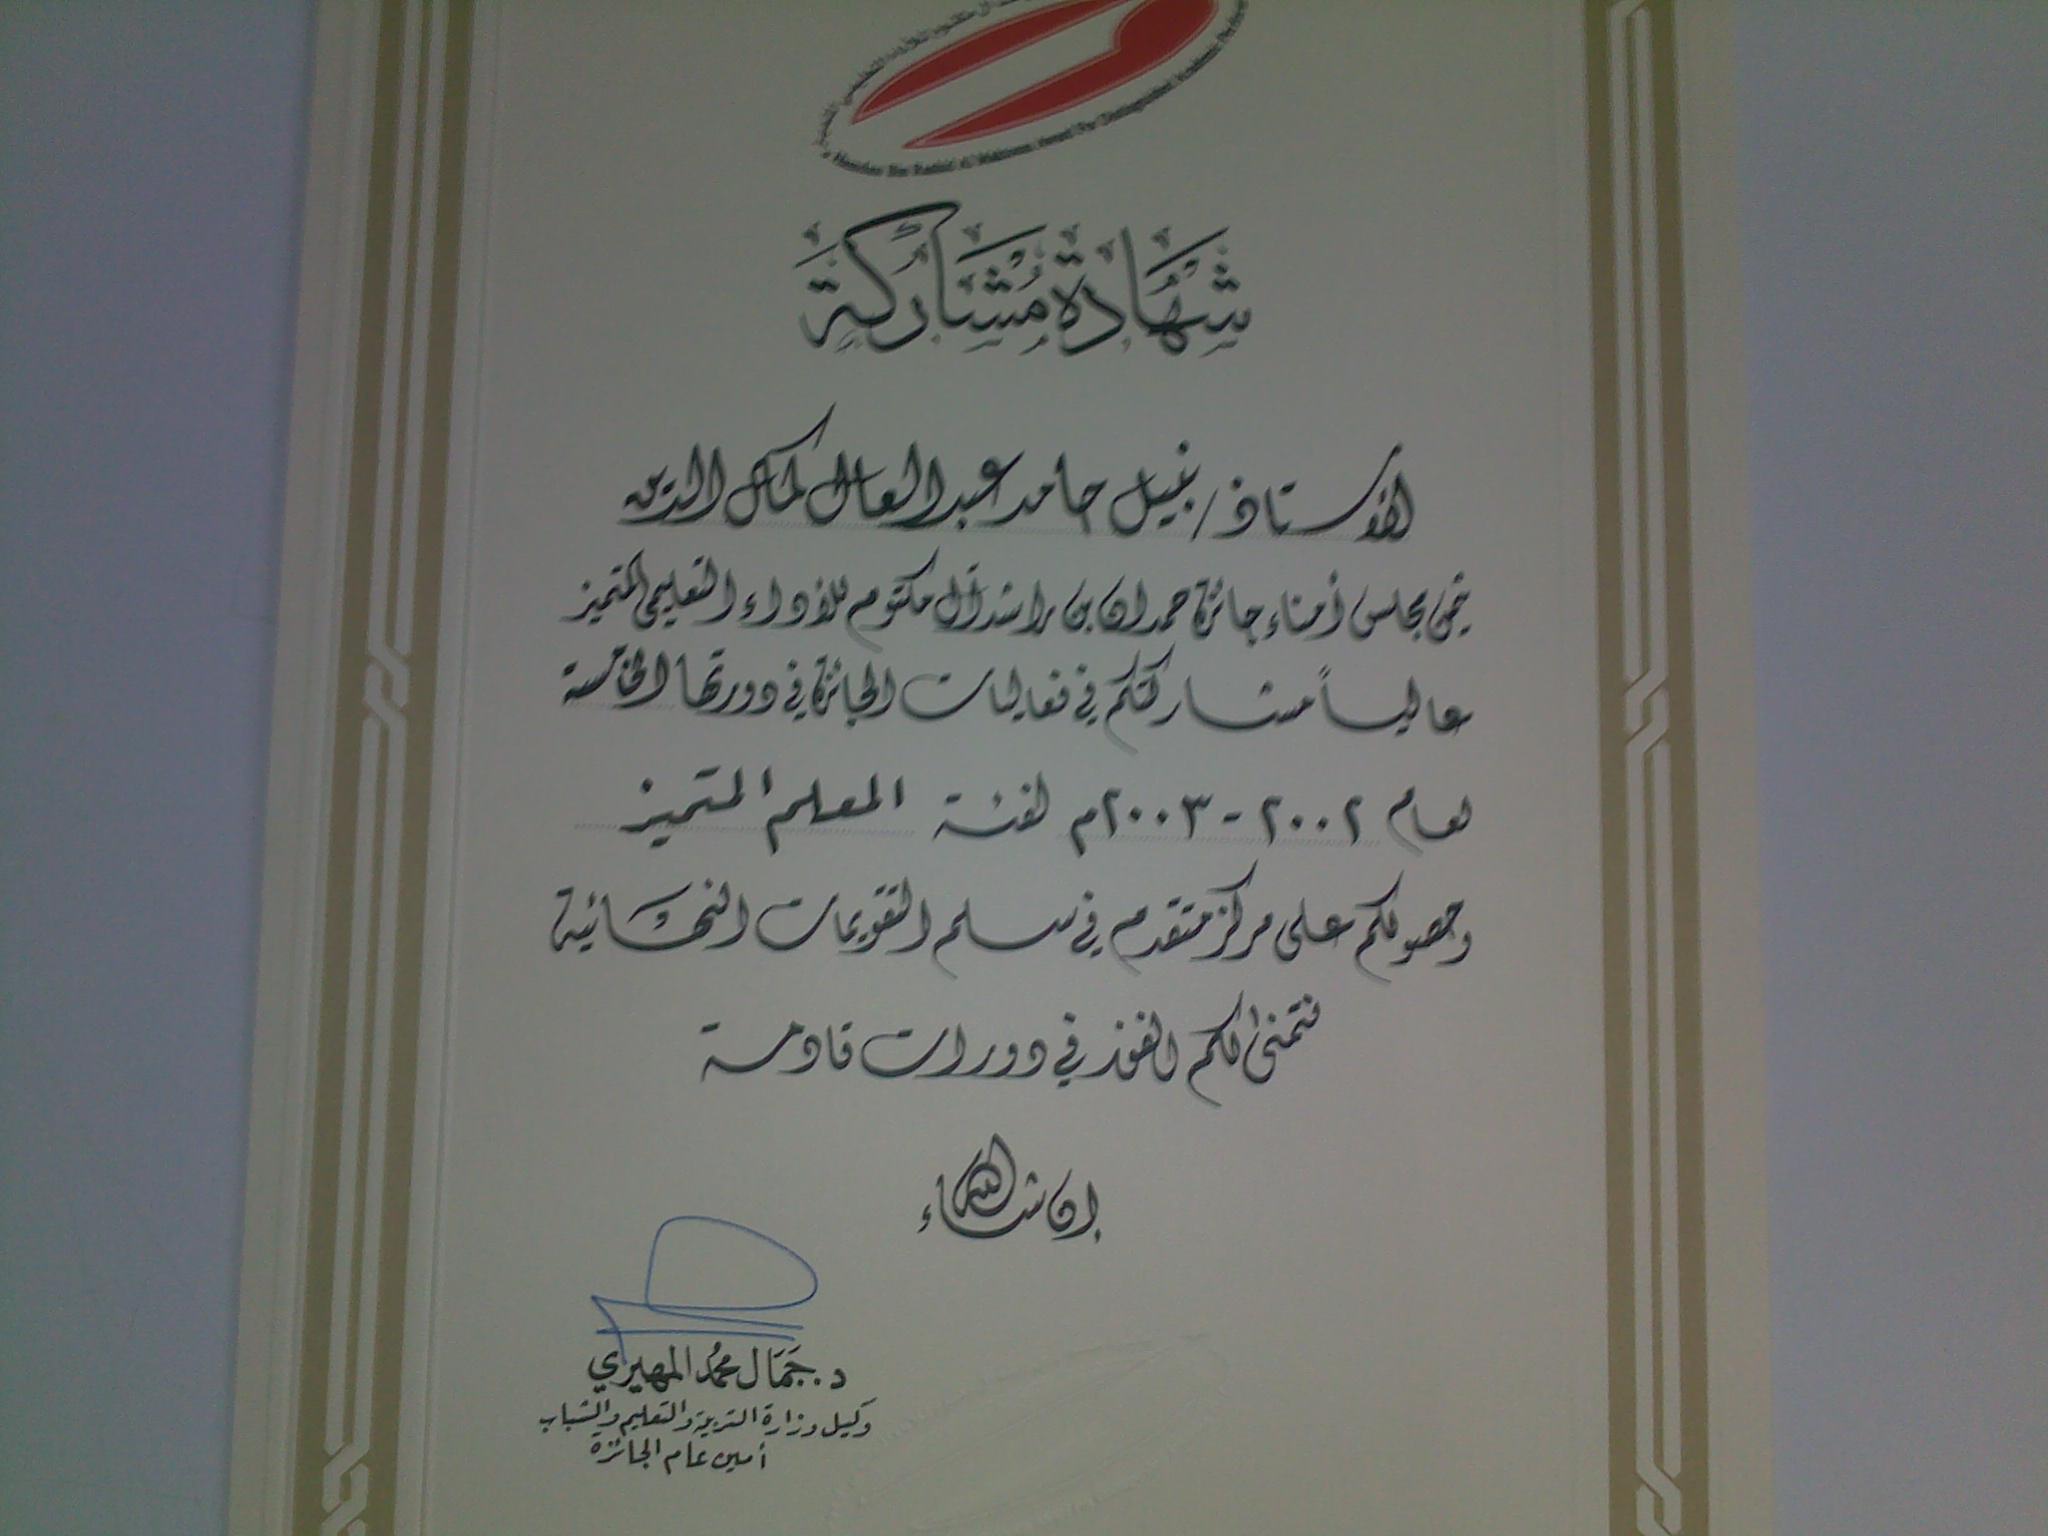 Hamdan Bin Rashid Al Maktoum Award For Distinguished Academic Perfor
شهادة مشاركة
الأستاذ / نبيل حامد عبد العال كمال الدين
يثمن مجلس أمناء جائزة حمدان بن راشد آل مكتوم للأداء التعليمي المتميز
عالياً مشاركتكم في فعاليات الجائزة في دورتها الخامسة
لعام ٢٠٠٢ - ٢٠٠٣م لفئة المعلم المتميز
وحصولكم على مركز متقدم في سلم التقويمات النهائية
نتمنى لكم الفوز في دورات قادمة
إن شاء الله
د. جمال محمد المهيري
وكيل وزارة التربية والتعليم والشباب
أمين عام الجائزة